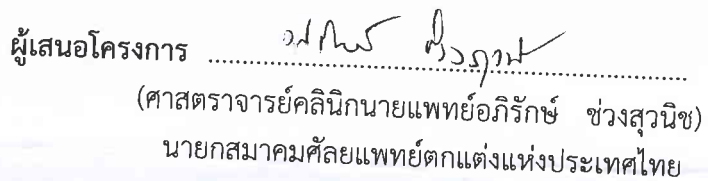 ผู้เสนอโครงการ ........................................................
(ศาสตราจารย์คลินิกนายแพทย์อภิรักษ์ ช่วงสุวนิช)
นายกสมาคมศัลยแพทย์ตกแต่งแห่งประเทศไทย